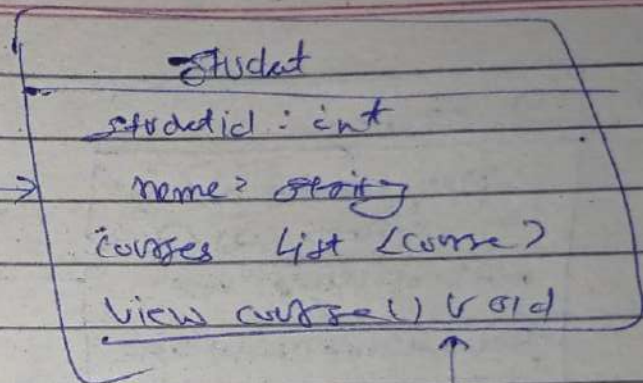 Student
studetid : int
name : string
courses List <course>
view course() void